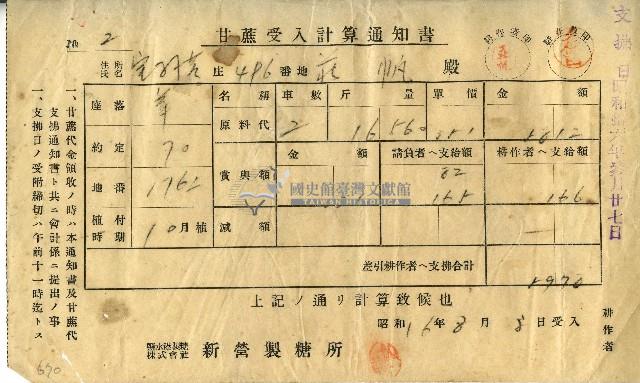 甘蔗受入計算通知書
№ 2
住所
氏名
庄 496 番地 莊 帆 殿
座落
約定 70
地番 1762
植付時期 10月植
名稱 車數 斤量 單價 金額
原料代 2 16560
金額 請負者へ支給額 耕作者へ支給額
賞與額 82
165 166
減額
差引耕作者へ支拂合計
上記ノ通リ計算致候也
昭和 16年 3月 8日受入
鹽水港製糖株式會社 新營製糖所
耕作者
一、甘蔗代金領收ノ時ハ本通知書及甘蔗代
支拂通知書ト共ニ會計係ニ提出ノ事
一、支拂日ノ受附締切ハ午前十一時迄トス
支拂日昭和拾六年參月廿七日
國史館臺灣文獻館
TAIWAN HISTORICA
670